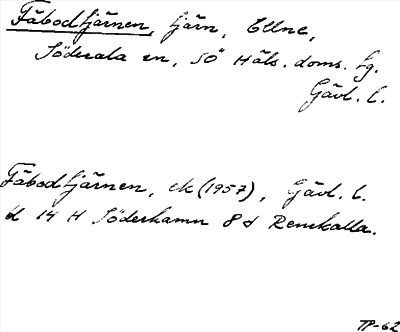 Fäbodtjärnen, tjärn, Ellne,
Söderala sn, SÖ Häls. doms. tg.
Gävl. l.
Fäbodtjärnen, ek (1957), Gävl. l.
bl 14 H Söderhamn 8 d Renskalla.
TP-62